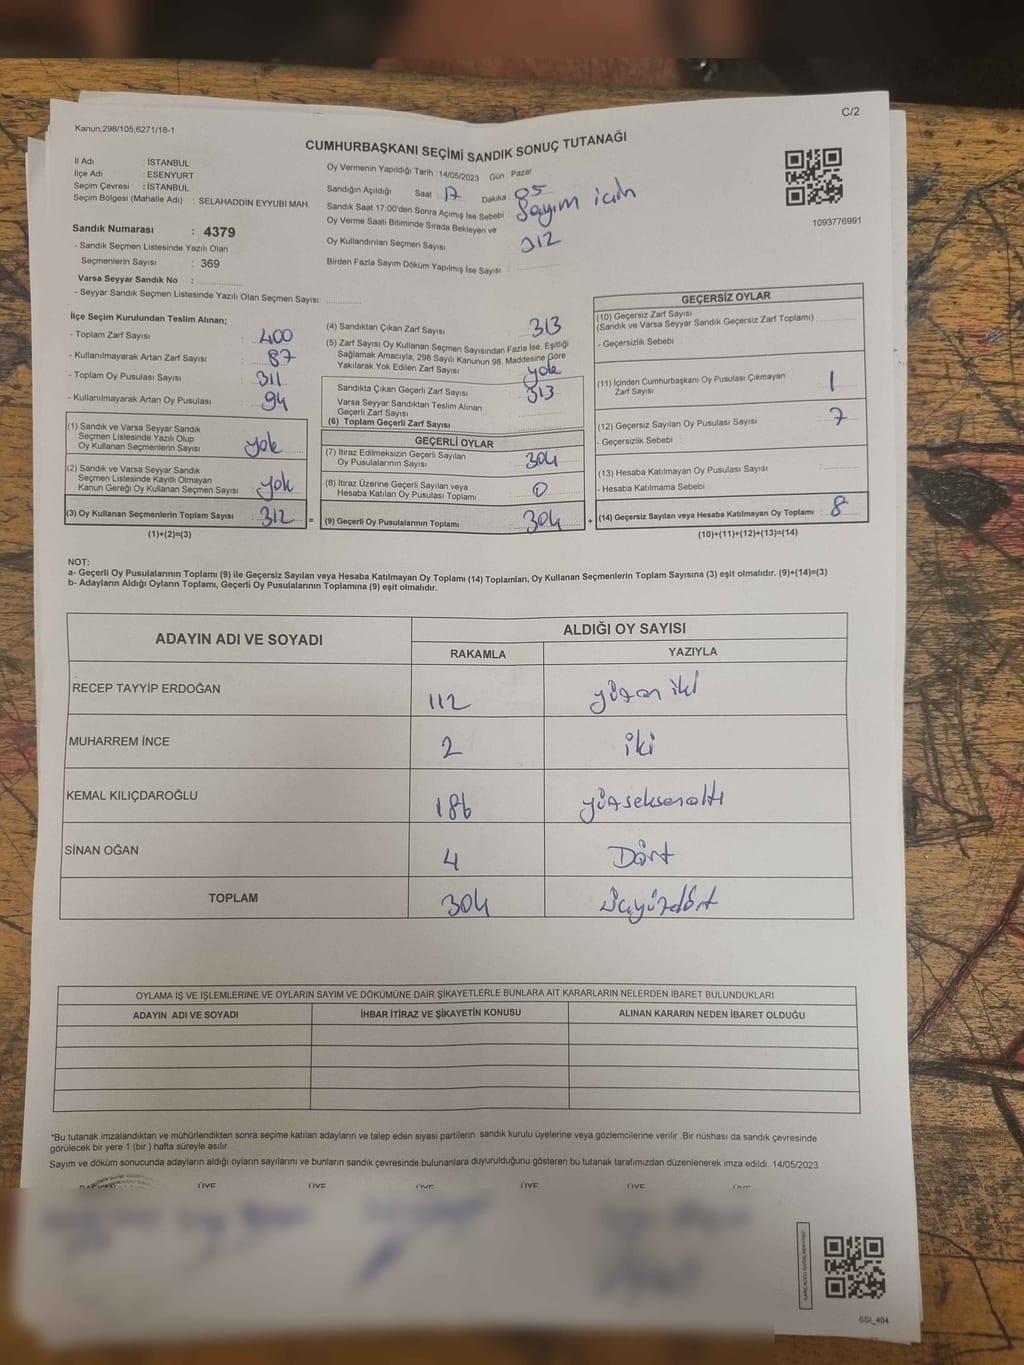 C/2
Kanun;298/105;6271/18-1
CUMHURBAŞKANI SEÇİMİ SANDIK SONUÇ TUTANAĞI
İl Adı : İSTANBUL
İlçe Adı : ESENYURT
Seçim Çevresi : İSTANBUL
Seçim Bölgesi (Mahalle Adı) : SELAHADDİN EYYUBİ MAH.
Sandık Numarası : 4379
- Sandık Seçmen Listesinde Yazılı Olan
Seçmenlerin Sayısı : 369
Varsa Seyyar Sandık No :
- Seyyar Sandık Seçmen Listesinde Yazılı Olan Seçmen Sayısı:
Oy Vermenin Yapıldığı Tarih :14/05/2023 Gün : Pazar
Sandığın Açıldığı Saat : 17 Dakika : 05
Sandık Saat 17:00'den Sonra Açımış İse Sebebi : Sayım için
Oy Verme Saati Bitiminde Sırada Bekleyen ve
Oy Kullandırılan Seçmen Sayısı 312
Birden Fazla Sayım Döküm Yapılmış İse Sayısı :
1093776991
İlçe Seçim Kurulundan Teslim Alınan;
- Toplam Zarf Sayısı : 400
- Kullanılmayarak Artan Zarf Sayısı : 87
- Toplam Oy Pusulası Sayısı : 311
- Kullanılmayarak Artan Oy Pusulası : 94
(1) Sandık ve Varsa Seyyar Sandık
Seçmen Listesinde Yazılı Olup
Oy Kullanan Seçmenlerin Sayısı : yok
(2) Sandık ve Varsa Seyyar Sandık
Seçmen Listesinde Kayıtlı Olmayan
Kanun Gereği Oy Kullanan Seçmen Sayısı : yok
(3) Oy Kullanan Seçmenlerin Toplam Sayısı : 312 =
(1)+(2)=(3)
(4) Sandıktan Çıkan Zarf Sayısı : 313
(5) Zarf Sayısı Oy Kullanan Seçmen Sayısından Fazla İse, Eşitliği
Sağlamak Amacıyla; 298 Sayılı Kanunun 98. Maddesine Göre
Yakılarak Yok Edilen Zarf Sayısı : yok
Sandıkta Çıkan Geçerli Zarf Sayısı : 313
Varsa Seyyar Sandıktan Teslim Alınan
Geçerli Zarf Sayısı
(6) Toplam Geçerli Zarf Sayısı
GEÇERLİ OYLAR
(7) İtiraz Edilmeksizin Geçerli Sayılan
Oy Pusulalarının Sayısı : 304
(8) İtiraz Üzerine Geçerli Sayılan veya
Hesaba Katılan Oy Pusulası Toplamı : 0
(9) Geçerli Oy Pusulalarının Toplamı : 304 +
GEÇERSİZ OYLAR
(10) Geçersiz Zarf Sayısı
(Sandık ve Varsa Seyyar Sandık Geçersiz Zarf Toplamı) :
- Geçersizlik Sebebi :
(11) İçinden Cumhurbaşkanı Oy Pusulası Çıkmayan
Zarf Sayısı : 1
(12) Geçersiz Sayılan Oy Pusulası Sayısı : 7
- Geçersizlik Sebebi :
(13) Hesaba Katılmayan Oy Pusulası Sayısı :
- Hesaba Katılmama Sebebi :
(14) Geçersiz Sayılan veya Hesaba Katılmayan Oy Toplamı : 8
(10)+(11)+(12)+(13)=(14)
NOT:
a- Geçerli Oy Pusulalarının Toplamı (9) ile Geçersiz Sayılan veya Hesaba Katılmayan Oy Toplamı (14) Toplamları, Oy Kullanan Seçmenlerin Toplam Sayısına (3) eşit olmalıdır. (9)+(14)=(3)
b- Adayların Aldığı Oyların Toplamı, Geçerli Oy Pusulalarının Toplamına (9) eşit olmalıdır.
ADAYIN ADI VE SOYADI ALDIĞI OY SAYISI
RAKAMLA YAZIYLA
RECEP TAYYİP ERDOĞAN 112 yüzon iki
MUHARREM İNCE 2 iki
KEMAL KILIÇDAROĞLU 186 yüzseksenaltı
SİNAN OĞAN 4 Dört
TOPLAM 304 üçyüzdört
OYLAMA İŞ VE İŞLEMLERİNE VE OYLARIN SAYIM VE DÖKÜMÜNE DAİR ŞİKAYETLERLE BUNLARA AİT KARARLARIN NELERDEN İBARET BULUNDUKLARI
ADAYIN ADI VE SOYADI İHBAR İTİRAZ VE ŞİKAYETİN KONUSU ALINAN KARARIN NEDEN İBARET OLDUĞU
*Bu tutanak imzalandıktan ve mühürlendikten sonra seçime katılan adayların ve talep eden siyasi partilerin sandık kurulu üyelerine veya gözlemcilerine verilir. Bir nüshası da sandık çevresinde
görülecek bir yere 1 (bir ) hafta süreyle asılır.
Sayım ve döküm sonucunda adayların aldığı oyların sayılarını ve bunların sandık çevresinde bulunanlara duyurulduğunu gösteren bu tutanak tarafımızdan düzenlenerek imza edildi. 14/05/2023
ÜYE ÜYE ÜYE ÜYE ÜYE ÜYE
SSI_404